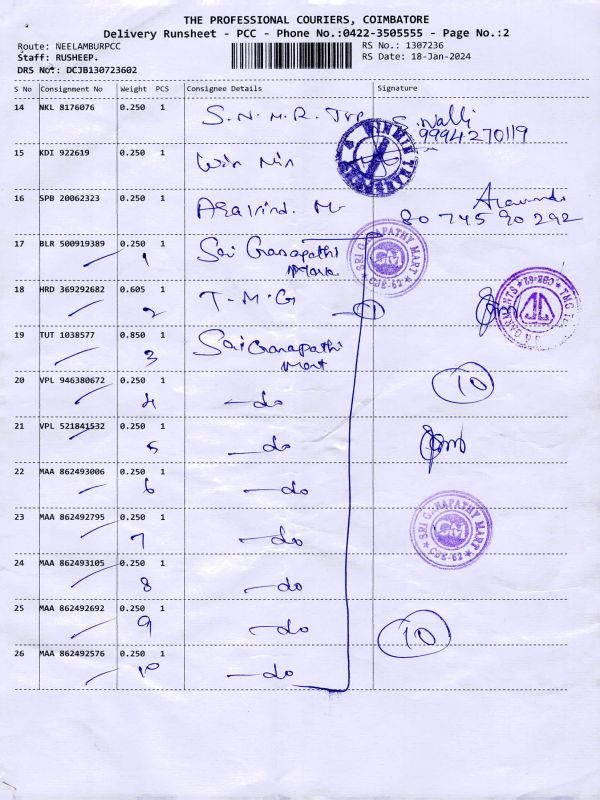 THE PROFESSIONAL COURIERS, COIMBATORE
Delivery Runsheet - PCC - Phone No.:0422-3505555 - Page No.:2
Route: NEELAMBURPCC
RS No.: 1307236
Staff: RUSHEEP.
RS Date: 18-Jan-2024
DRS No.: DCJB130723602
S No Consignment No Weight PCS Consignee Details Signature
14 NKL 8176076 0.250 1 S.N.M.R. S.Valli
9994270119
15 KDI 922619 0.250 1 Win Min
16 SPB 20062323 0.250 1 Aravind. M
80 745 90 292
17 BLR 500919389 0.250 1 Sri Ganapathi
1
SRI GANAPATHY MART
CBE-62
18 HRD 369292682 0.605 1 T-M-G 1
2
19 TUT 1038577 0.850 1 Sri Ganapathi
3 Mart
20 VPL 946380672 0.250 1 10
4 -do
21 VPL 521841532 0.250 1
5 -do
22 MAA 862493006 0.250 1
6 -do
SRI GANAPATHY MART
CBE-62
23 MAA 862492795 0.250 1
7 -do
24 MAA 862493105 0.250 1
8 -do
25 MAA 862492692 0.250 1
9 -do 10
26 MAA 862492576 0.250 1
10 -do